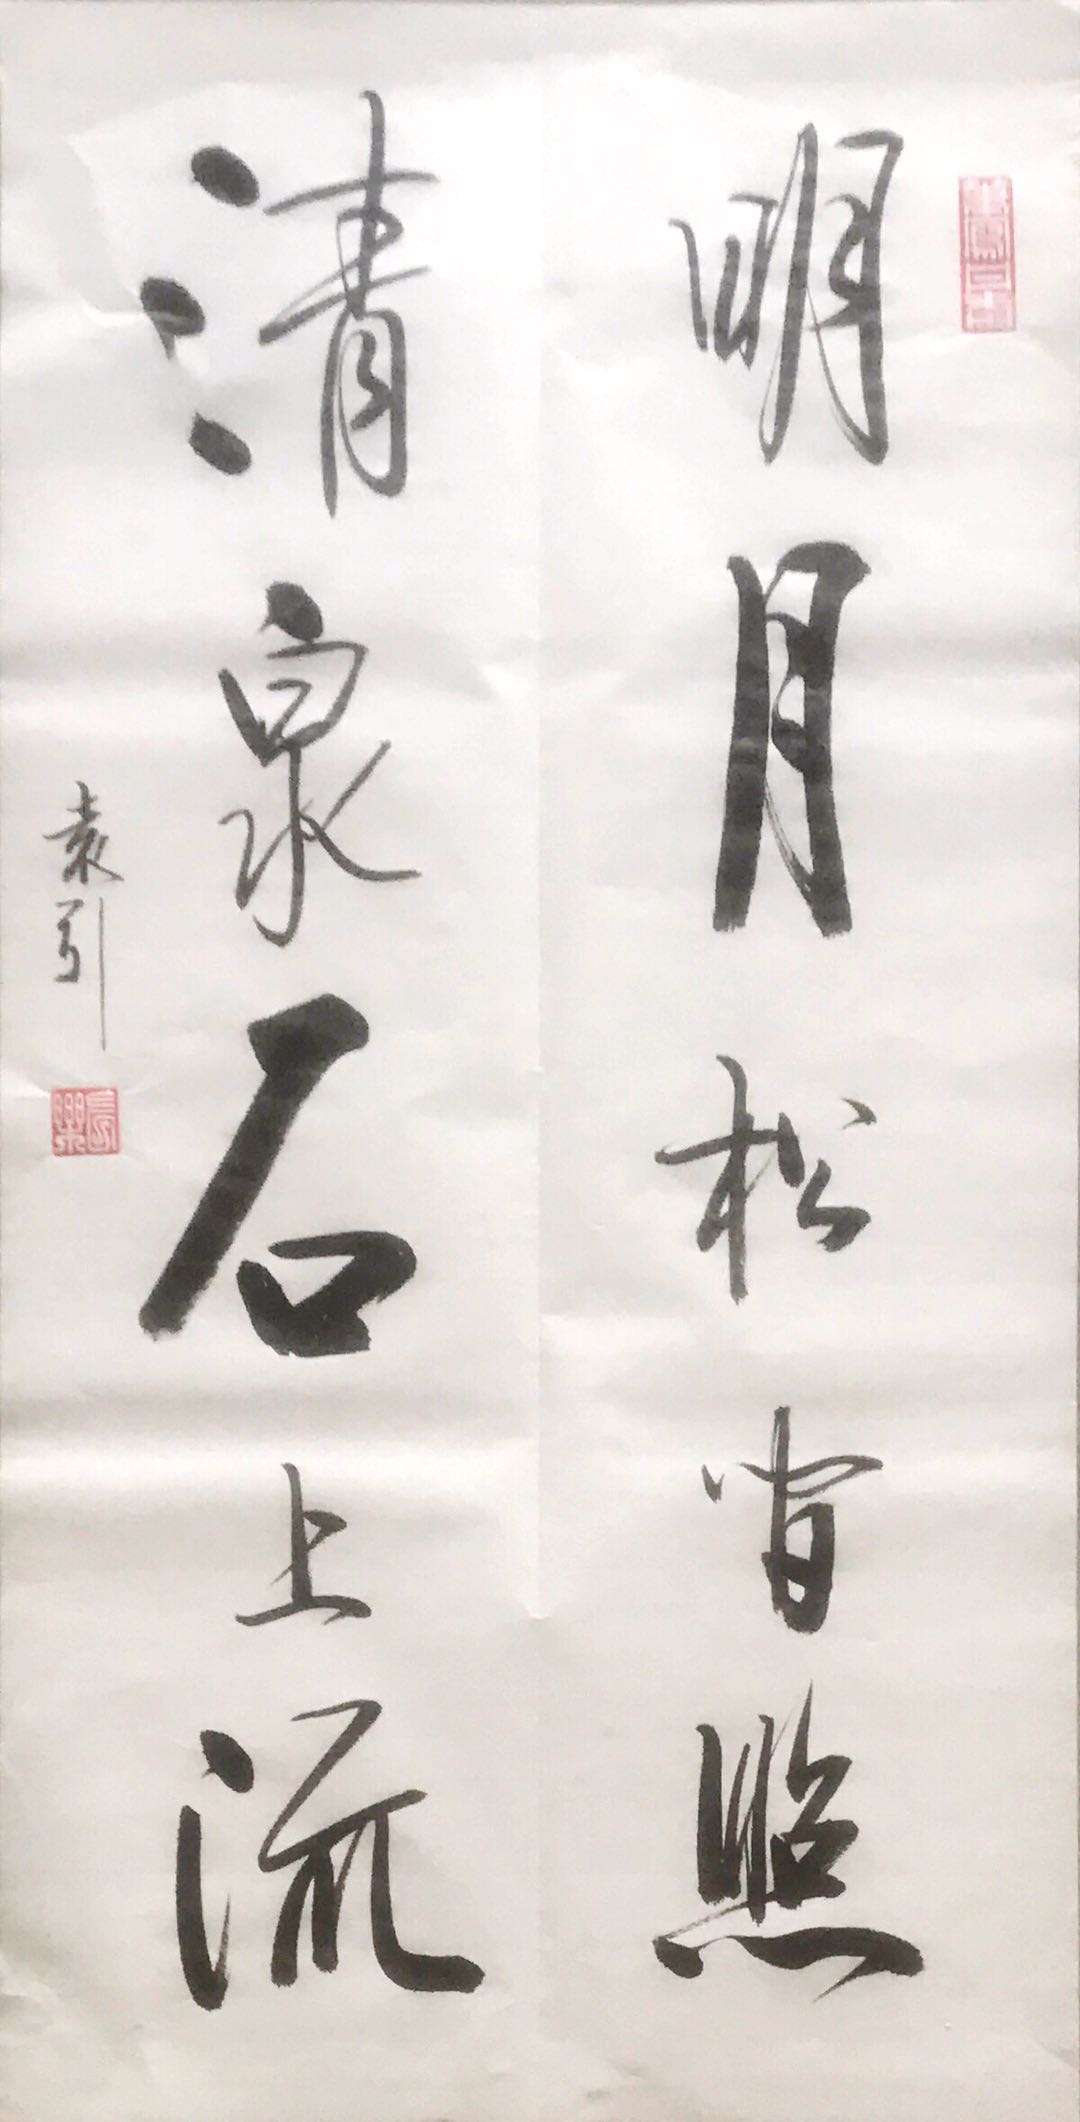 明月松间照
清泉石上流
袁引